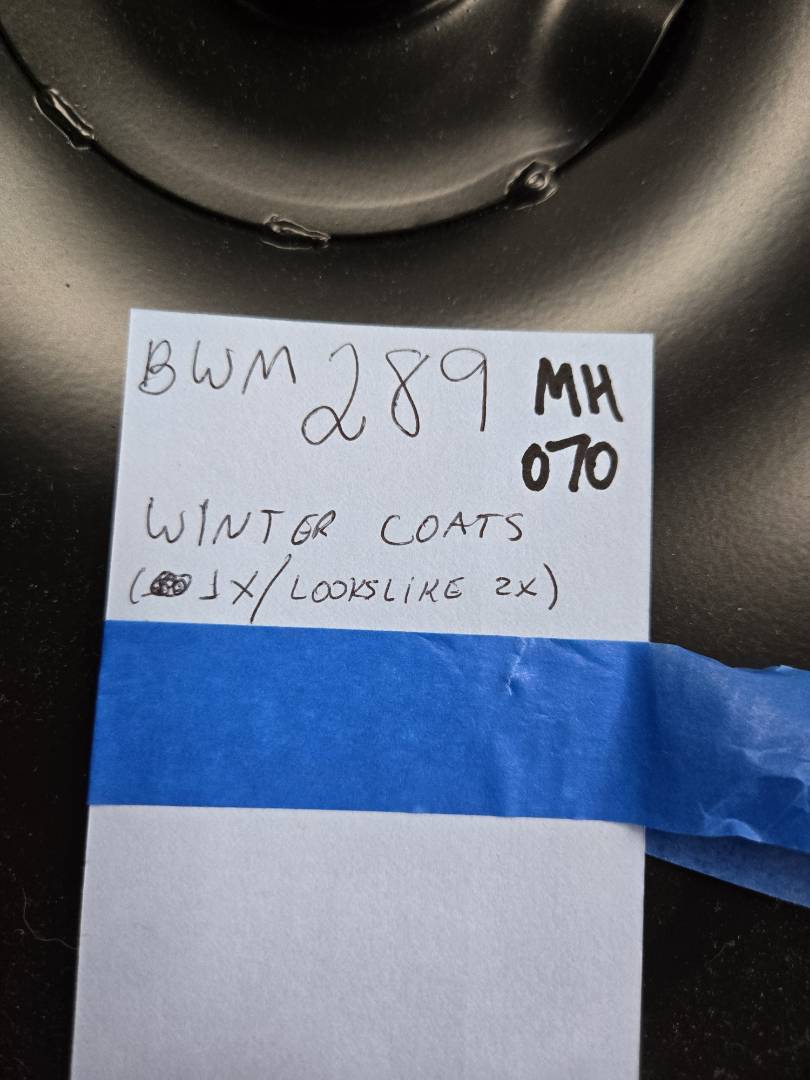 BWM 289 MH
070
WINTER COATS
(1X/LOOKSLIKE 2X)